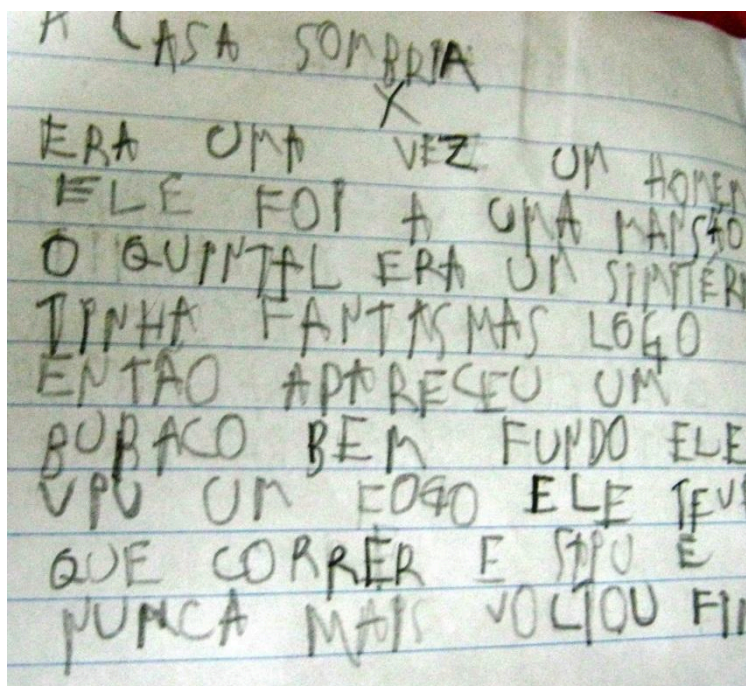 A CASA SOMBRIA
X
ERA UMA VEZ UM HOMEM
ELE FOI A UMA MANSÃO
O QUINTAL ERA UM SIMITÉRI
TINHA FANTASMAS LOGO
ENTÃO APARECEU UM
BURACO BEM FUNDO ELE
VIU UM FOGO ELE TEVE
QUE CORRER E SAIU E
NUNCA MAIS VOLTOU FIM